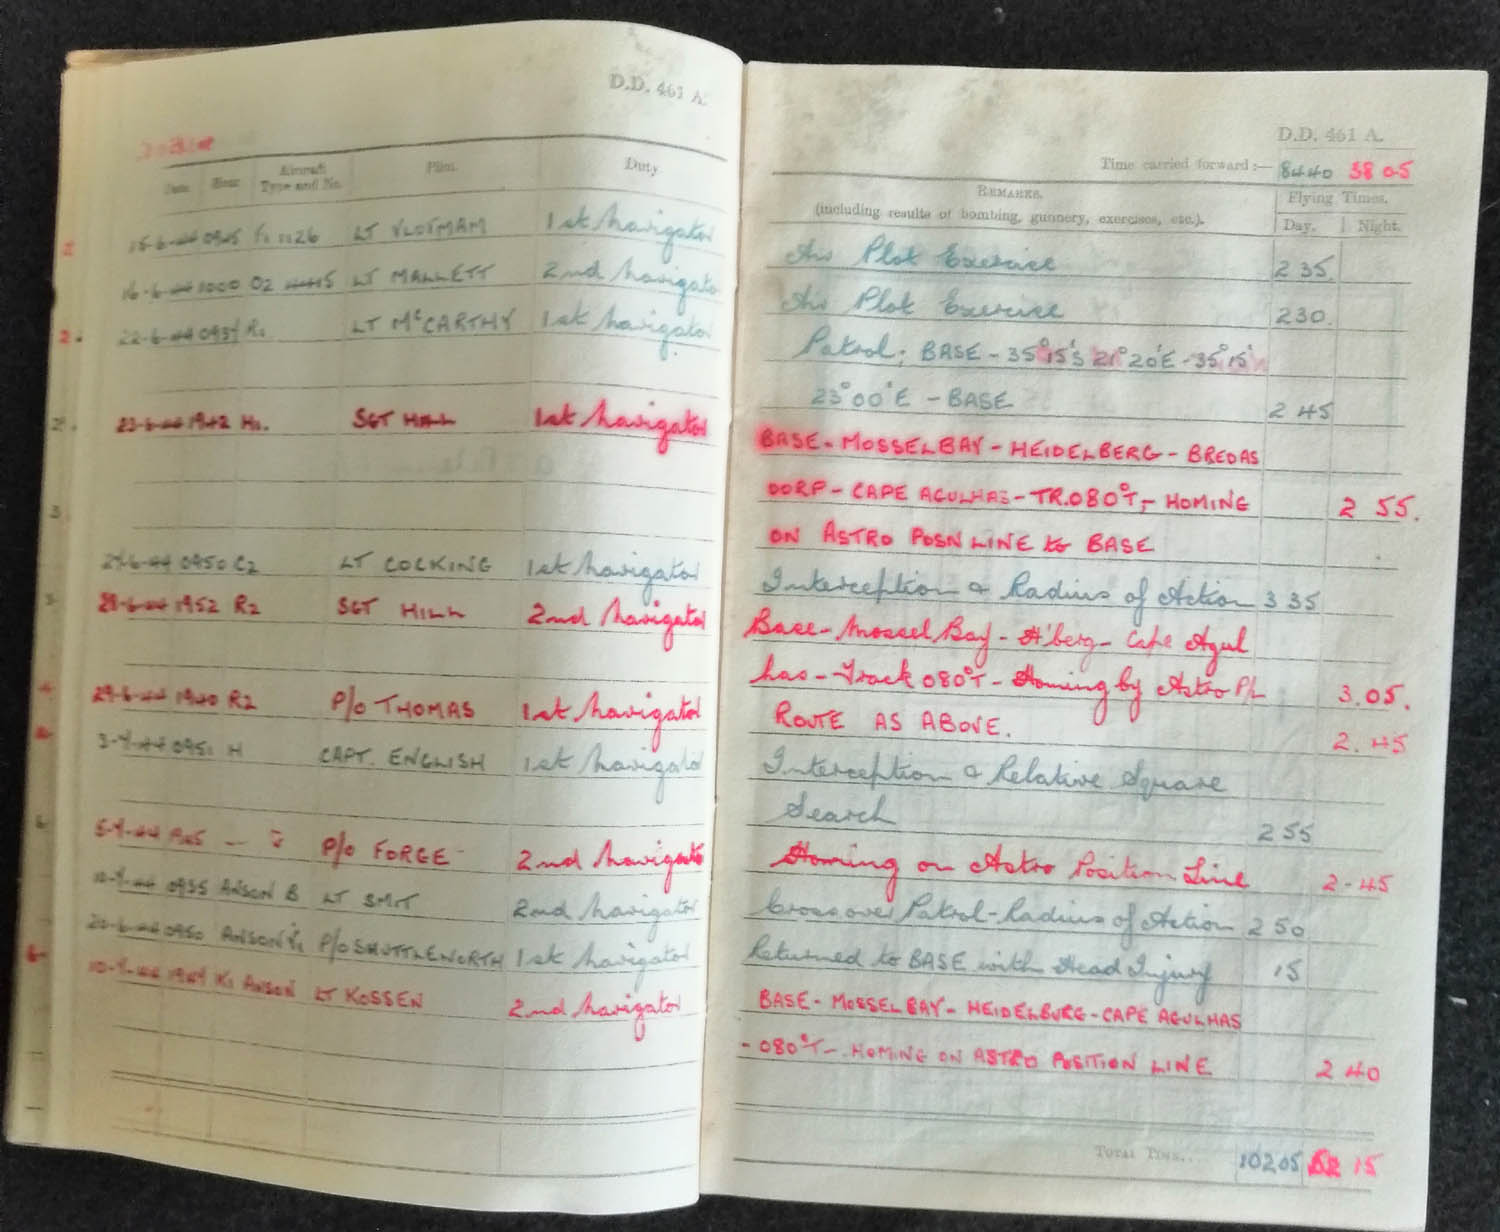 D.D. 461 A.
Date Hour Aircraft Type and No. Pilot Duty
15-6-44 0945 1126 LT VLOTMAM 1st Navigator
16-6-44 1000 O2 4415 LT MALLETT 2nd Navigator
2. 22-6-44 0937 R1 LT McCARTHY 1st Navigator
2. 23-6-44 1942 H1. SGT HILL 1st Navigator
3.
0950 C2 LT COCKING 1st Navigator
28-6-44 1952 R2 SGT HILL 2nd Navigator
29-6-44 1940 R2 P/O THOMAS 1st Navigator
3-7-44 0951 H CAPT. ENGLISH 1st Navigator
5-7-44 P/O FORGE 2nd Navigator
10-7-44 0955 ANSON B LT SMIT 2nd Navigator
0950 ANSON P/O SHUTTLEWORTH 1st Navigator
10-7-44 K1 ANSON LT KOSSEN 2nd Navigator
D.D. 461 A.
Time carried forward:— 8440 38 05
REMARKS. Flying Times.
(including results of bombing, gunnery, exercises, etc.). Day. Night.
Air Plot Exercise 2 35
Air Plot Exercise 230.
Patrol; BASE - 35°15'S 21°20'E - 35°15'
23°00'E - BASE 2 45
BASE - MOSSEL BAY - HEIDELBERG - BREDAS
DORP - CAPE AGULHAS - TR.080°T, - HOMING 2 55.
ON ASTRO POSN LINE to BASE
Interception & Radius of Action 3 35
Base - Mossel Bay - H'berg - Cape Agul
has - Track 080°T - Homing by Astro P/L 3.05.
ROUTE AS ABOVE. 2.45
Interception & Relative Square
Search 2 55
Homing on Astro Position Line 2-45
Crossover Patrol - Radius of Action 2 50
Returned to BASE with Head Injury 15
BASE - MOSSEL BAY - HEIDELBURG - CAPE AGULHAS
- 080°T - HOMING ON ASTRO POSITION LINE 2 40
TOTAL TIME... 10205 52 15